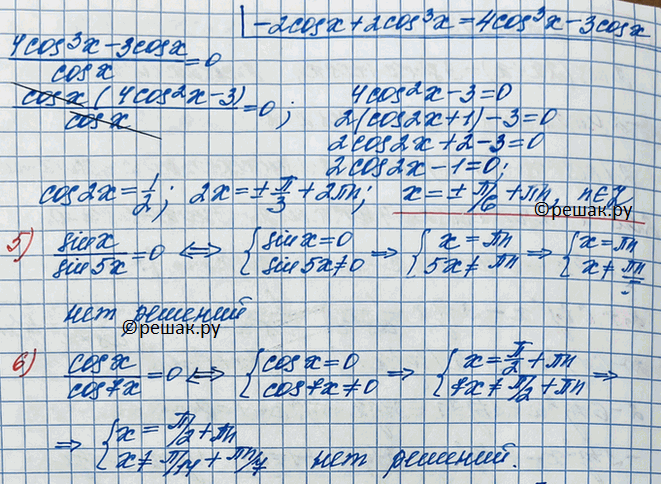 -2cosx+2cos³x=4cos³x-3cosx
(4cos³x-3cosx)/cosx=0
cosx(4cos²x-3)/cosx=0;
4cos²x-3=0
2(cos2x+1)-3=0
2cos2x+2-3=0
2cos2x-1=0;
cos2x=1/2; 2x=±π/3+2πn; x=±π/6+πn, n∈Z
©решак.ру
5) sinx/sin5x=0 ⟺ {sinx=0 sin5x≠0 ⇒ {x=πn 5x≠πn ⇒ {x=πn x≠πn/5
нет решений
©решак.ру
6) cosx/cos7x=0 ⟺ {cosx=0 cos7x≠0 ⇒ {x=π/2+πn 7x≠π/2+πn ⇒
⇒ {x=π/2+πn x≠π/14+πn/7 нет решений.